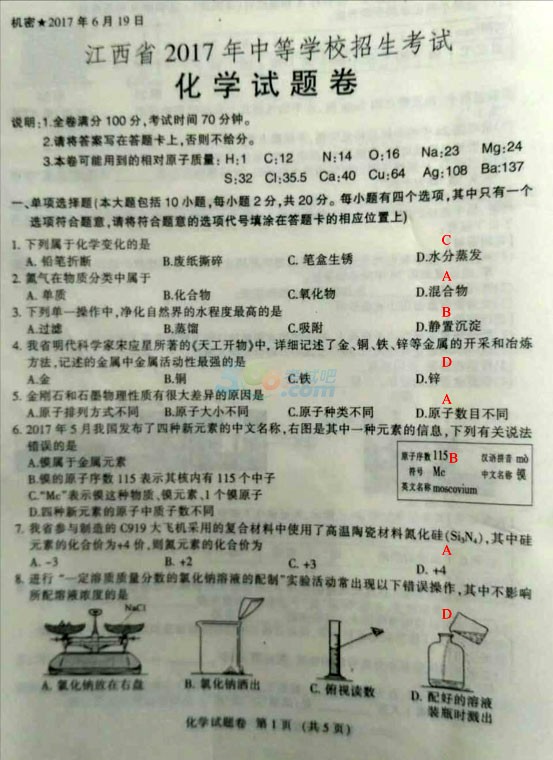 机密★2017年6月19日
江西省2017年中等学校招生考试
化学试题卷
说明:1.全卷满分100分,考试时间70分钟。
2.请将答案写在答题卡上,否则不给分。
3.本卷可能用到的相对原子质量:H:1 C:12 N:14 O:16 Na:23 Mg:24
S:32 Cl:35.5 Ca:40 Cu:64 Ag:108 Ba:137
一、单项选择题(本大题包括10小题,每小题2分,共20分。每小题有四个选项,其中只有一个
选项符合题意,请将符合题意的选项代号填涂在答题卡的相应位置上)
1.下列属于化学变化的是 C
A.铅笔折断 B.废纸撕碎 C.笔盒生锈 D.水分蒸发
2.氮气在物质分类中属于 A
A.单质 B.化合物 C.氧化物 D.混合物
3.下列单一操作中,净化自然界的水程度最高的是 B
A.过滤 B.蒸馏 C.吸附 D.静置沉淀
4.我省明代科学家宋应星所著的《天工开物》中,详细记述了金、铜、铁、锌等金属的开采和冶炼
方法,记述的金属中金属活动性最强的是 D
A.金 B.铜 C.铁 D.锌
5.金刚石和石墨物理性质有很大差异的原因是 A
A.原子排列方式不同 B.原子大小不同 C.原子种类不同 D.原子数目不同
6.2017年5月我国发布了四种新元素的中文名称,右图是其中一种元素的信息,下列有关说法
错误的是
A.镆属于金属元素
B.镆的原子序数115表示其核内有115个中子
C."Mc"表示镆这种物质、镆元素、1个镆原子
D.四种新元素的原子中质子数不同
原子序数 115 B 汉语拼音 mò
符号 Mc 中文名称 镆
英文名称 moscovium
7.我省参与制造的C919大飞机采用的复合材料中使用了高温陶瓷材料氮化硅(Si₃N₄),其中硅
元素的化合价为+4价,则氮元素的化合价为 A
A. -3 B. +2 C. +3 D. +4
8.进行"一定溶质质量分数的氯化钠溶液的配制"实验活动常出现以下错误操作,其中不影响
所配溶液浓度的是 D
NaCl
A.氯化钠放在右盘 B.氯化钠洒出 C.俯视读数 D.配好的溶液
装瓶时溅出
化学试题卷 第1页 (共5页)